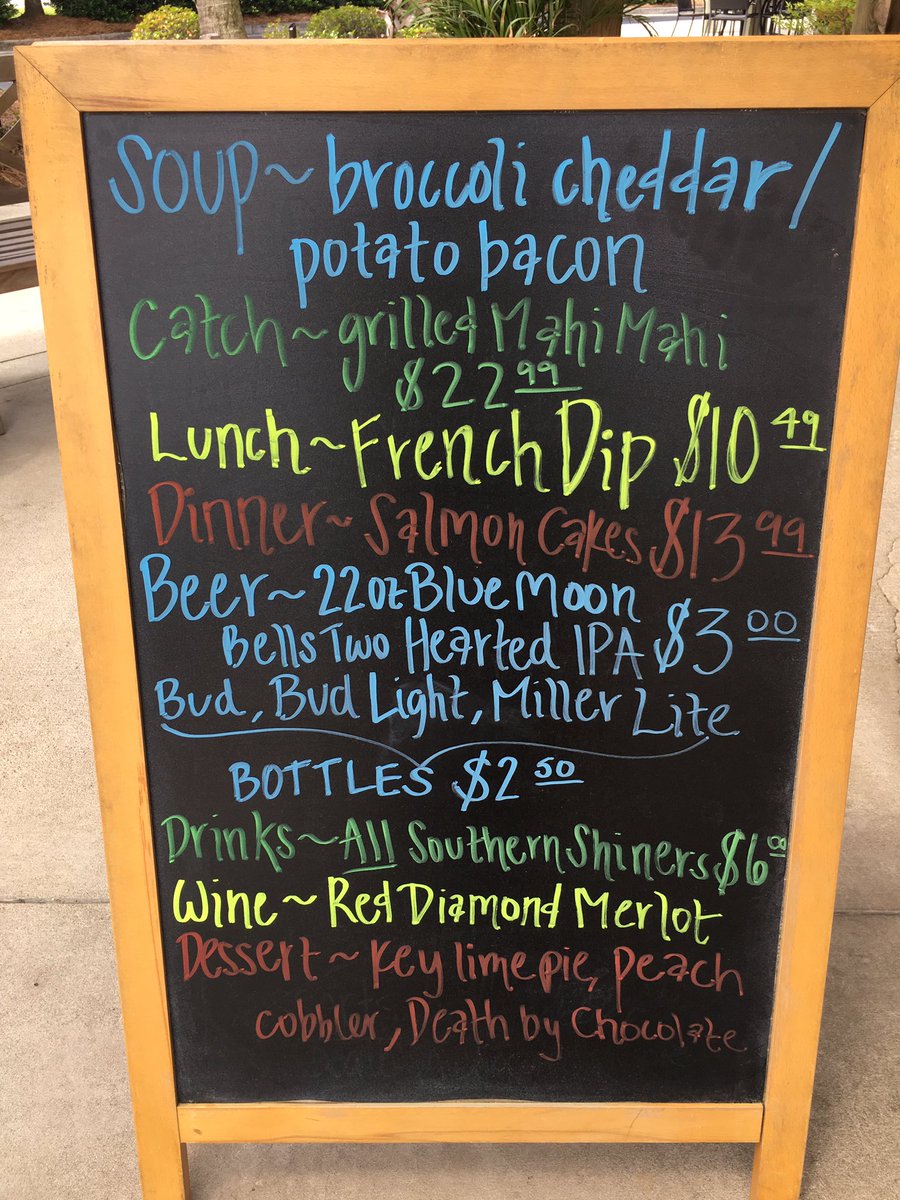 Soup~ broccoli cheddar/
potato bacon
Catch~grilled Mahi Mahi
$22.99
Lunch~French Dip $10.49
Dinner~ Salmon Cakes $13.99
Beer~ 22oz Blue Moon
Bells Two Hearted IPA $3.00
Bud, Bud Light, Miller Lite
BOTTLES $2.50
Drinks~All Southern Shiners $6.00
Wine~ Red Diamond Merlot
Dessert~ Key lime pie, peach
cobbler, Death by Chocolate